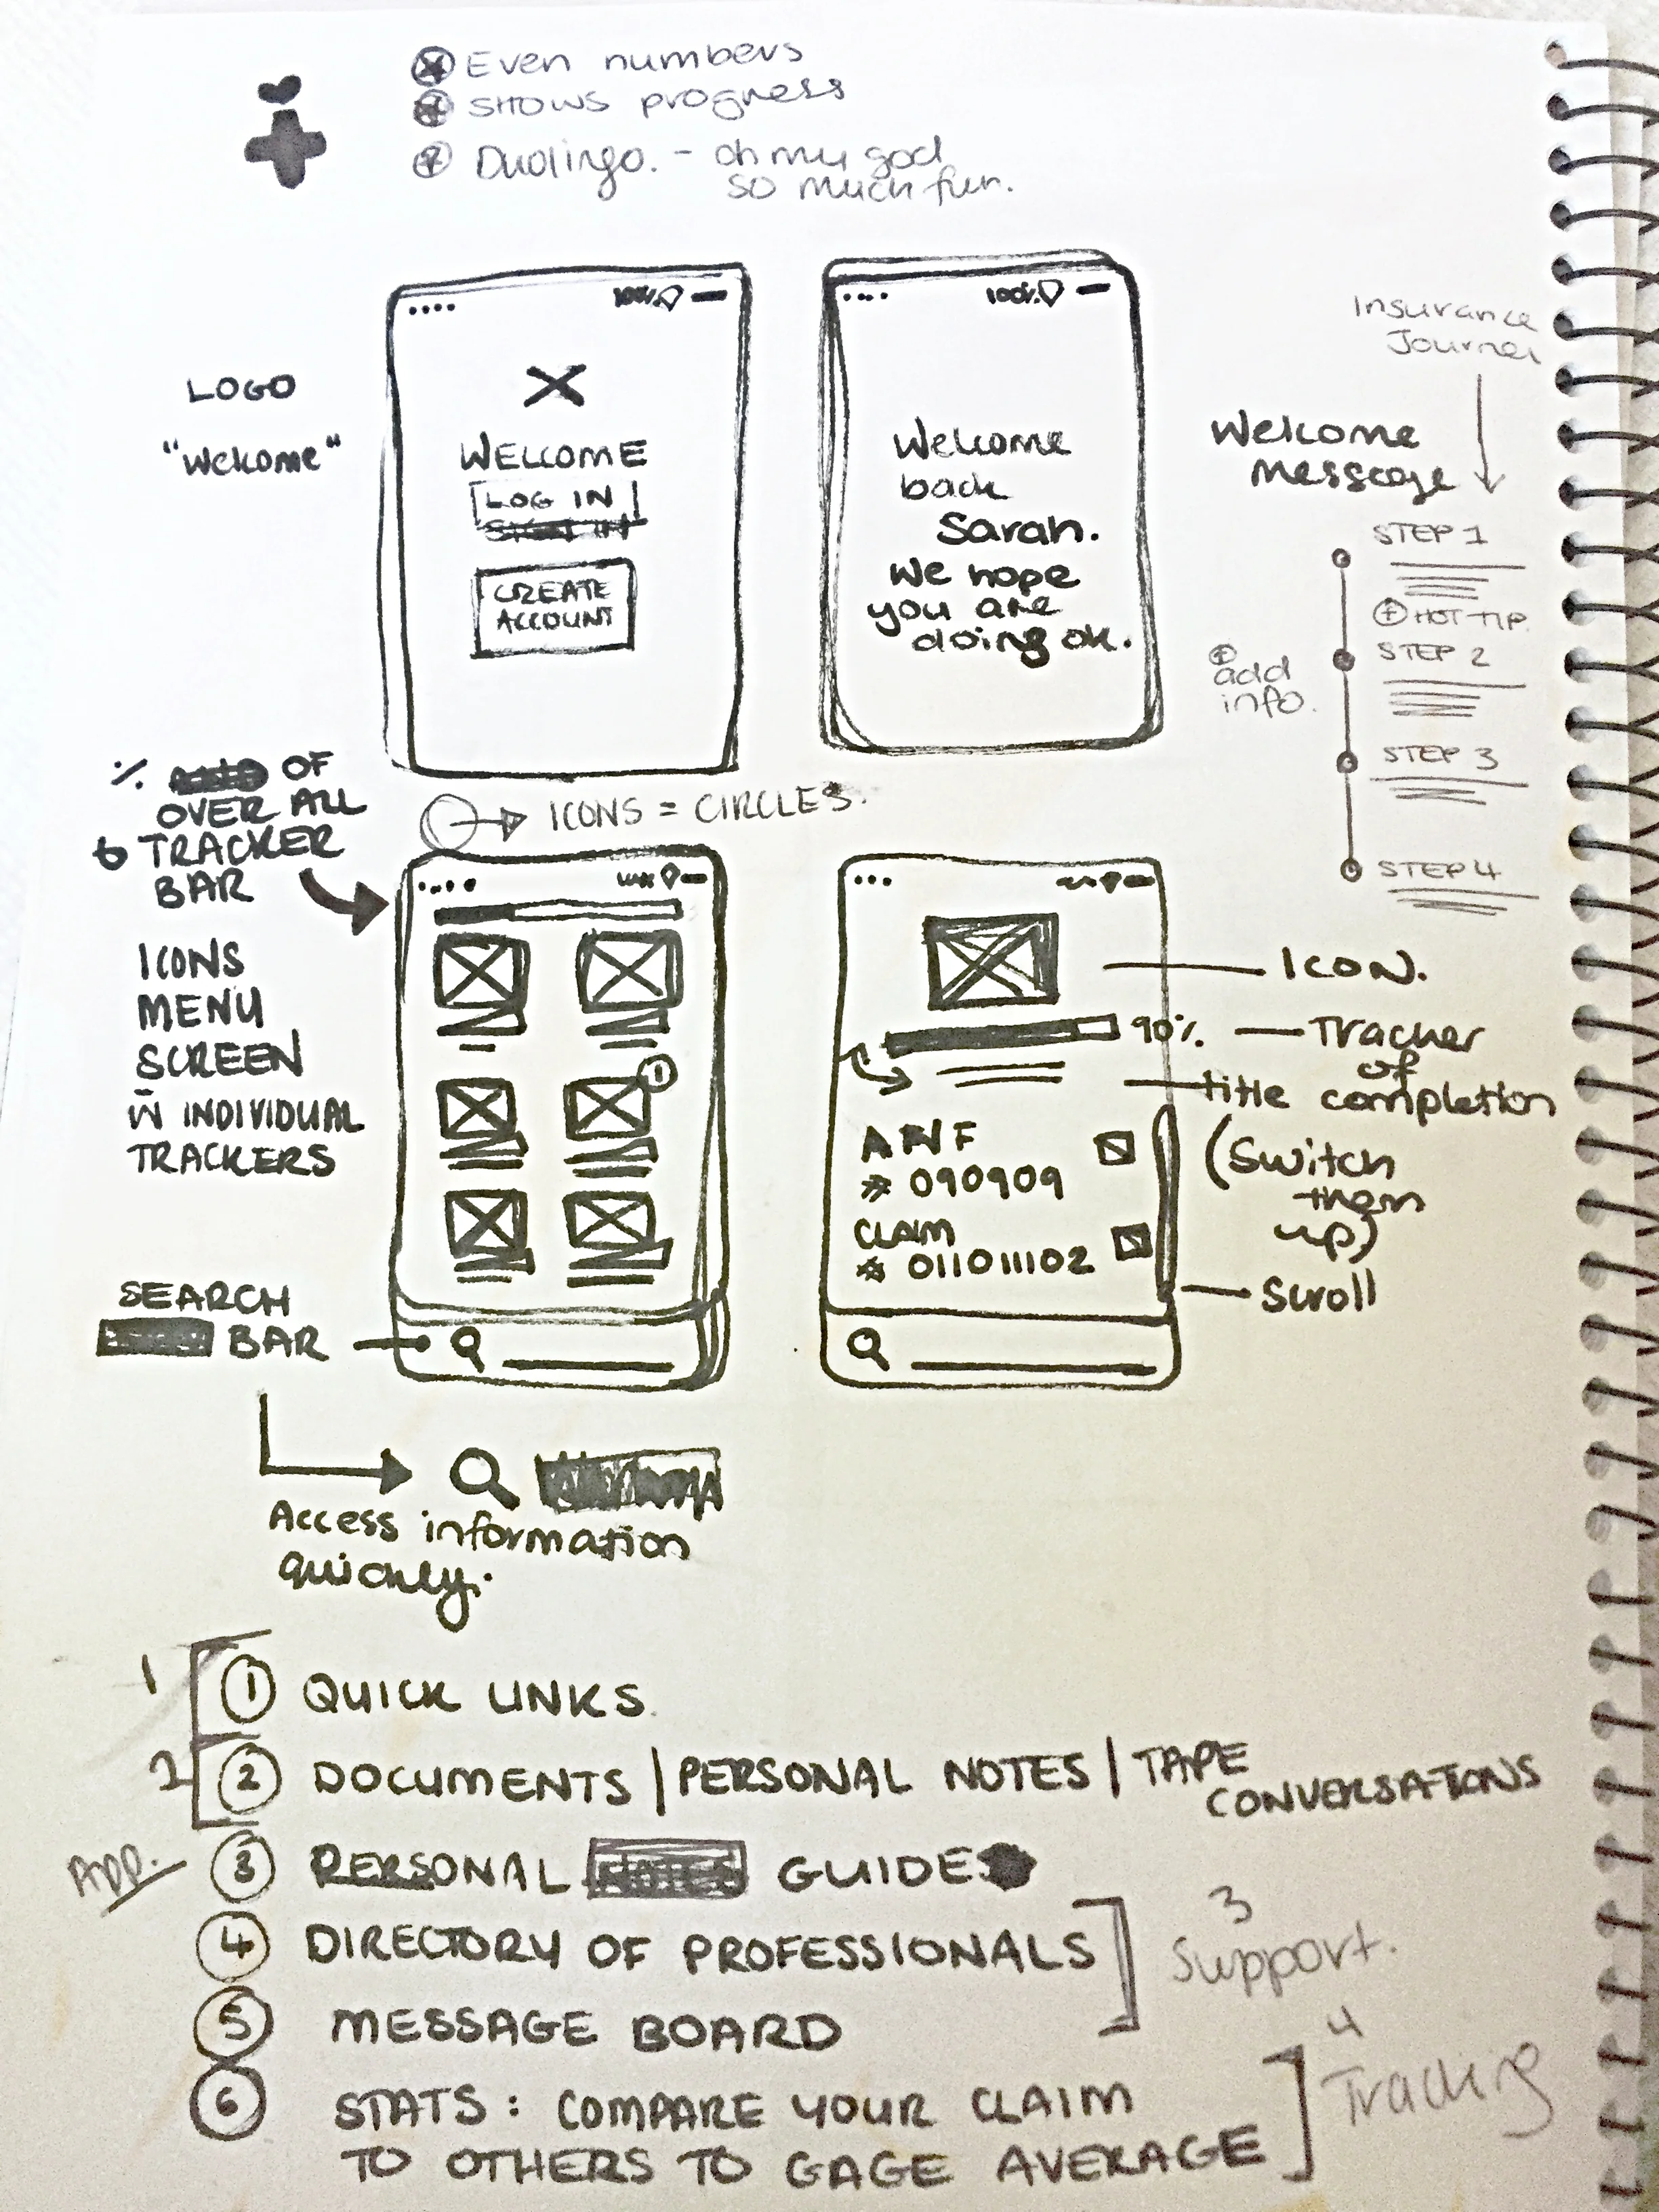 Even numbers
SHOWS progress
Duolingo. - oh my god
so much fun.
LOGO
"Welcome"
100%
WELCOME
LOG IN
CREATE
ACCOUNT
100%
Welcome
back
Sarah.
We hope
you are
doing ok.
Insurance
Journey
Welcome
message
STEP 1
+ HOT TIP.
STEP 2
+
add
info.
STEP 3
STEP 4
% OF
OVER ALL
TRACKER
BAR
ICONS = CIRCLES.
ICONS
MENU
SCREEN
W INDIVIDUAL
TRACKERS
1
SEARCH
BAR
ICON.
90%
Tracker
of
title completion
(Switch
them
up)
# 090909
CLAIM
# 011011102
Scroll
Access information
quickly.
1
1 QUICK LINKS
2
2 DOCUMENTS | PERSONAL NOTES | TAPE
CONVERSATIONS
App.
3 PERSONAL GUIDE
4 DIRECTORY OF PROFESSIONALS
3
Support.
5 MESSAGE BOARD
4
Tracking
6 STATS: COMPARE YOUR CLAIM
TO OTHERS TO GAGE AVERAGE